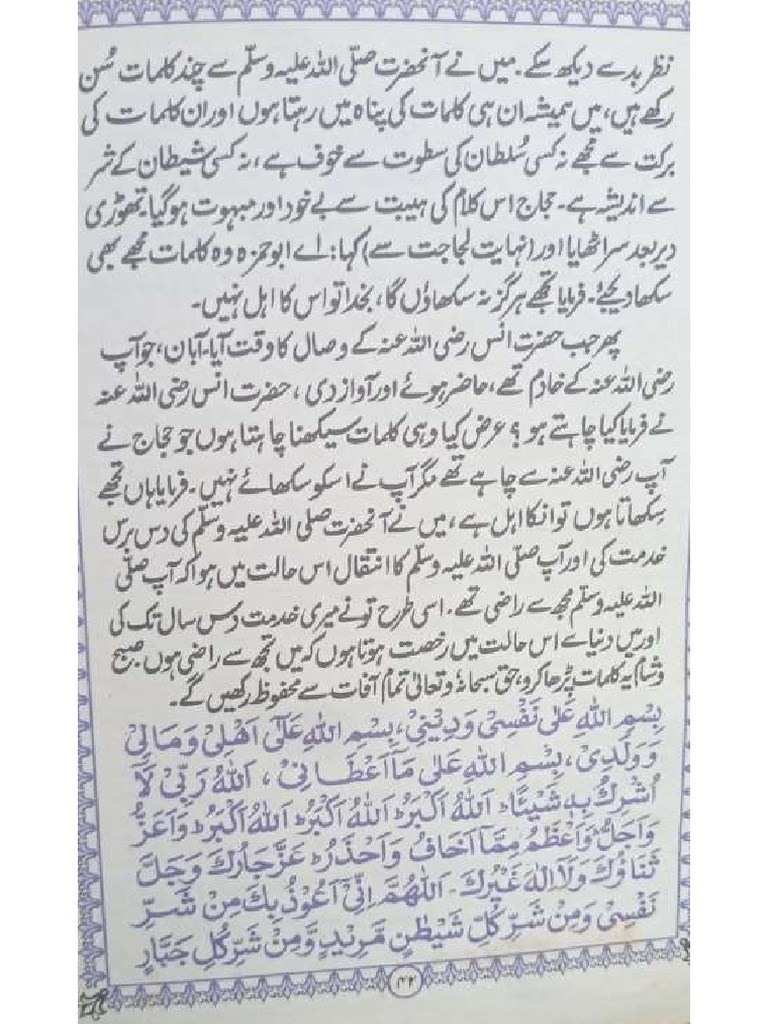 نظر بد سے دیکھ سکے۔ میں نے آنحضرت صلّی اللہ علیہ وسلّم سے چند کلمات سُن
رکھے ہیں، میں ہمیشہ ان ہی کلمات کی پناہ میں رہتا ہوں اور ان کلمات کی
برکت سے مجھے نہ کسی سُلطان کی سطوت سے خوف ہے، نہ کسی شیطان کے شر
سے اندیشہ ہے۔ حجاج اس کلام کی ہیبت سے بے خود اور مبہوت ہوگیا۔ تھوڑی
دیر بعد سر اٹھایا اور (نہایت لجاجت سے) کہا: اے ابوحمزہ وہ کلمات مجھے بھی
سکھا دیجئے۔ فرمایا تجھے ہرگز نہ سکھاؤں گا، بخدا تو اس کا اہل نہیں۔
پھر جب حضرت انس رضی اللہ عنہ کے وصال کا وقت آیا۔ آبان، جو آپ
رضی اللہ عنہ کے خادم تھے، حاضر ہوئے اور آواز دی، حضرت انس رضی اللہ عنہ
نے فرمایا کیا چاہتے ہو؟ عرض کیا وہی کلمات سیکھنا چاہتا ہوں جو حجاج نے
آپ رضی اللہ عنہ سے چاہے تھے مگر آپ نے اسکو سکھائے نہیں۔ فرمایا ہاں تجھے
سکھاتا ہوں تو انکا اہل ہے، میں نے آنحضرت صلی اللہ علیہ وسلّم کی دس برس
خدمت کی اور آپ صلّی اللہ علیہ وسلّم کا انتقال اس حالت میں ہوا کہ آپ صلّی
اللہ علیہ وسلّم مجھ سے راضی تھے۔ اسی طرح تو نے میری خدمت دس سال تک کی
اور میں دنیا سے اس حالت میں رخصت ہوتا ہوں کہ میں تجھ سے راضی ہوں۔ صبح
وشام یہ کلمات پڑھا کرو، حق سبحانہٗ وتعالیٰ تمام آفات سے محفوظ رکھیں گے۔
بِسْمِ اللّٰهِ عَلٰى نَفْسِىْ وَدِيْنِىْ، بِسْمِ اللّٰهِ عَلٰٓى اَهْلِىْ وَمَالِىْ
وَوَلَدِىْ، بِسْمِ اللّٰهِ عَلٰى مَا اَعْطَانِىْ، اَللّٰهُ رَبِّىْ لَآ
اُشْرِكُ بِهٖ شَيْئًا ؕ اَللّٰهُ اَكْبَرُ ؕ اَللّٰهُ اَكْبَرُ ؕ اَللّٰهُ اَكْبَرُ ؕ وَاَعَزُّ
وَاَجَلُّ وَاَعْظَمُ مِمَّا اَخَافُ وَاَحْذَرُ ؕ عَزَّ جَارُكَ وَجَلَّ
ثَنَاؤُكَ وَلَآ اِلٰهَ غَيْرُكَ۔ اَللّٰهُمَّ اِنِّىْ اَعُوْذُ بِكَ مِنْ شَرِّ
نَفْسِىْ وَمِنْ شَرِّ كُلِّ شَيْطٰنٍ مَّرِيْدٍ وَّمِنْ شَرِّ كُلِّ جَبَّارٍ
۴۲